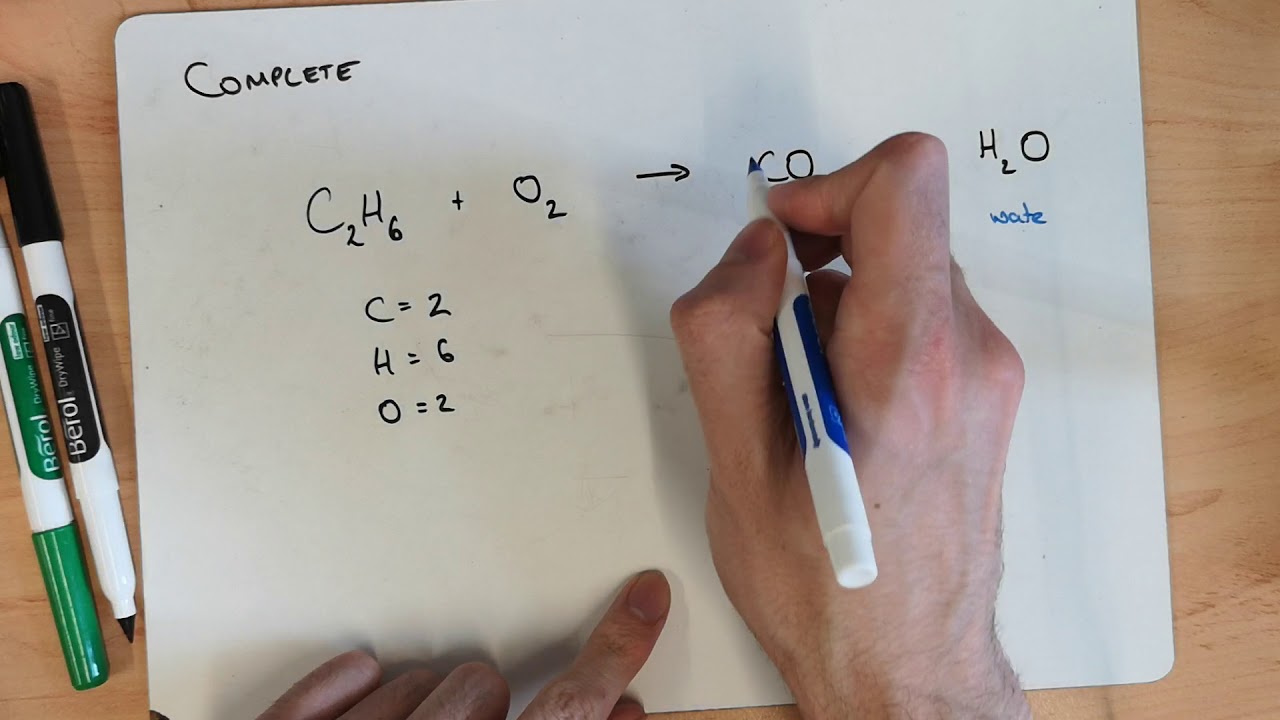 COMPLETE
C₂H₆ + O₂ → CO H₂O
wate
C = 2
H = 6
O = 2
Berol DryWipe
Berol DryWipe fine